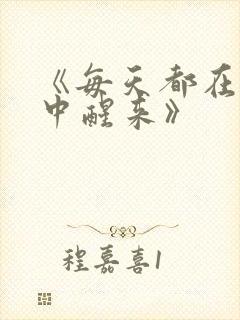 《每天都在
中醒来》
程嘉喜1